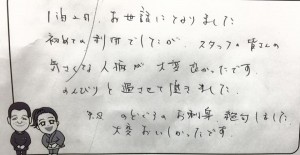 1泊2日、お世話になりました
初めての利用でしたが、スタッフの皆さんの
気さくな人柄が大変良かったです。
のんびりと過させて頂きました。
のどぐろのお刺身、絶句しました
大変おいしかったです。